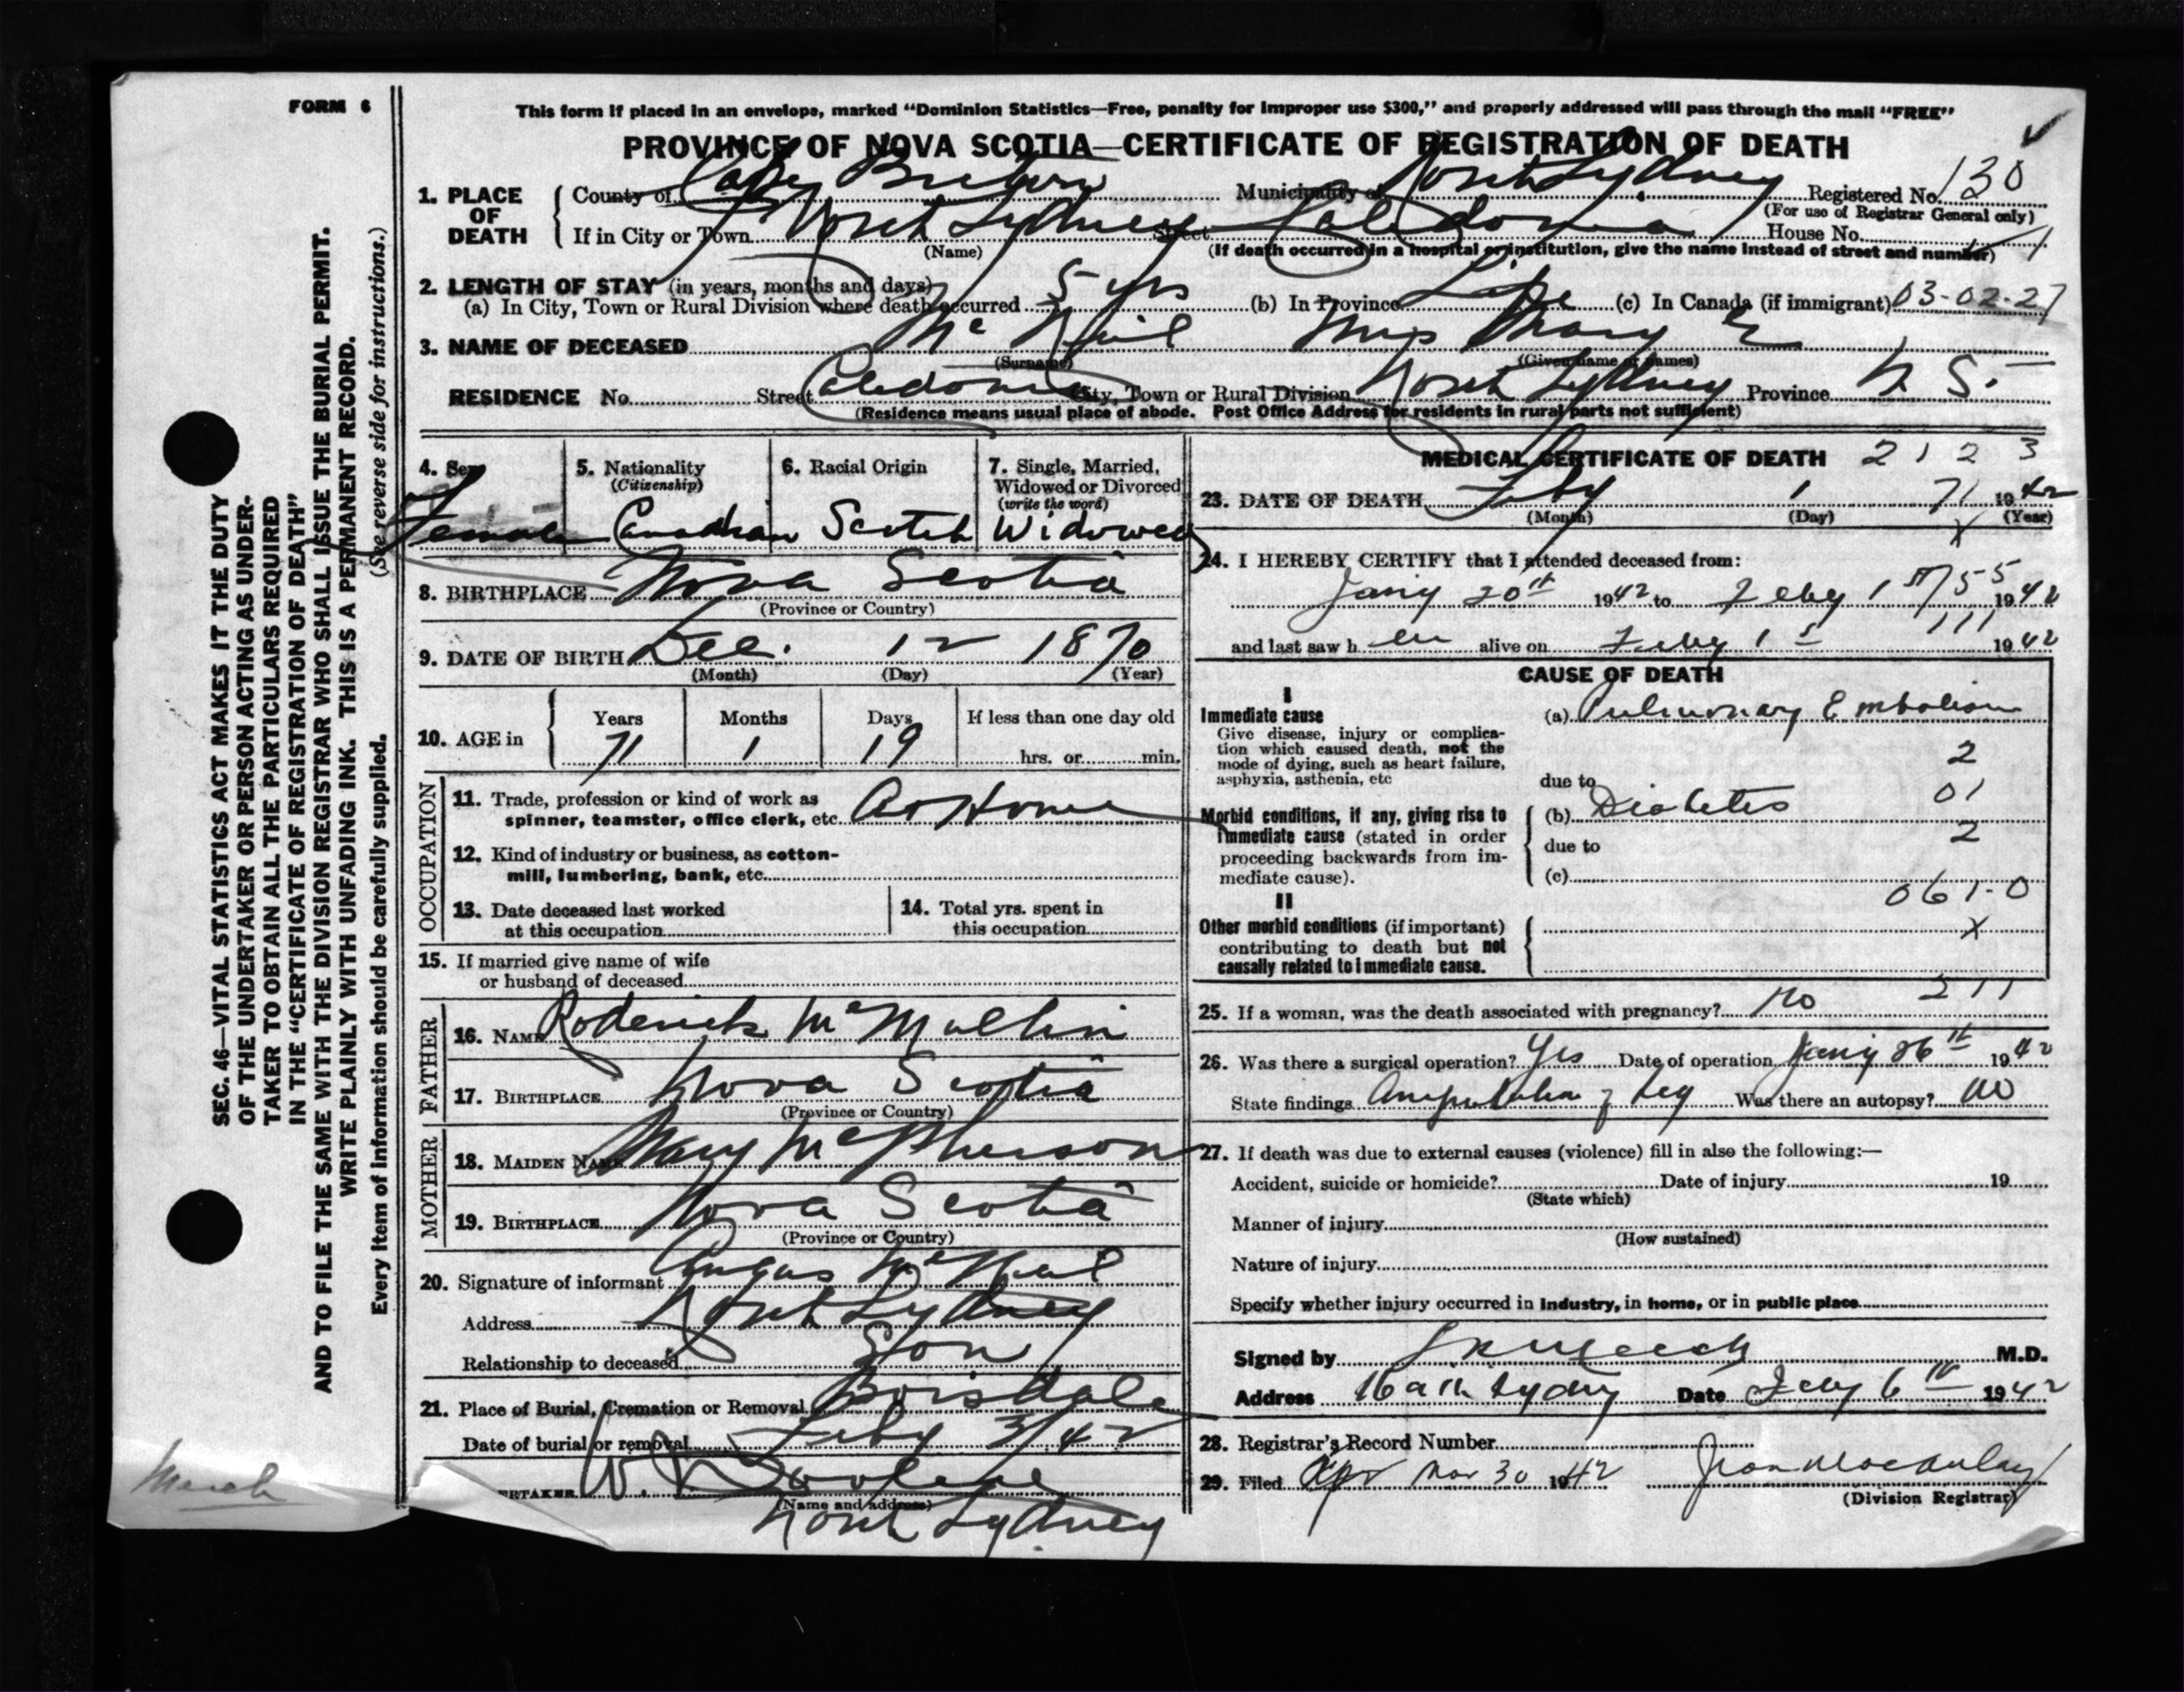 FORM 6
This form if placed in an envelope, marked "Dominion Statistics—Free, penalty for improper use $300," and properly addressed will pass through the mail "FREE"
PROVINCE OF NOVA SCOTIA—CERTIFICATE OF REGISTRATION OF DEATH
1. PLACE OF DEATH
County of Cape Breton Municipality of North Sydney Registered No. 130
(For use of Registrar General only)
If in City or Town North Sydney Street Caledonia House No.
(Name) (If death occurred in a hospital or institution, give the name instead of street and number)
2. LENGTH OF STAY (in years, months and days)
(a) In City, Town or Rural Division where death occurred 5 yrs (b) In Province Life (c) In Canada (if immigrant) 03-02-27
3. NAME OF DECEASED Mc Neil Mrs Mary E
(Surname) (Given name or names)
RESIDENCE No. Street Caledonia City, Town or Rural Division North Sydney Province N. S.
(Residence means usual place of abode. Post Office Address for residents in rural parts not sufficient)
4. Sex 5. Nationality 6. Racial Origin 7. Single, Married,
(Citizenship) Widowed or Divorced
(write the word)
Female Canadian Scotch Widowed
8. BIRTHPLACE Nova Scotia
(Province or Country)
9. DATE OF BIRTH Dec. 12 1870
(Month) (Day) (Year)
10. AGE in Years Months Days If less than one day old
71 1 19 hrs. or min.
OCCUPATION
11. Trade, profession or kind of work as
spinner, teamster, office clerk, etc. At Home
12. Kind of industry or business, as cotton-
mill, lumbering, bank, etc.
13. Date deceased last worked 14. Total yrs. spent in
at this occupation this occupation
15. If married give name of wife
or husband of deceased
FATHER
16. NAME Roderick McMullin
17. BIRTHPLACE Nova Scotia
(Province or Country)
MOTHER
18. MAIDEN NAME Mary McPherson
19. BIRTHPLACE Nova Scotia
(Province or Country)
20. Signature of informant Angus McNeil
Address North Sydney
Relationship to deceased Son
21. Place of Burial, Cremation or Removal Boisdale
Date of burial or removal Feby 3/42
ERTAKER W.
(Name and address)
North Sydney
MEDICAL CERTIFICATE OF DEATH 2123
23. DATE OF DEATH Feby 1 71 1942
(Month) (Day) (Year)
X
24. I HEREBY CERTIFY that I attended deceased from:
Jany 20th 1942 to Feby 1st 755 1942
111
and last saw her alive on Feby 1st 1942
CAUSE OF DEATH
I
Immediate cause (a) Pulmonary Embolism
Give disease, injury or complica-
tion which caused death, not the
mode of dying, such as heart failure,
asphyxia, asthenia, etc
2
due to
01
Morbid conditions, if any, giving rise to (b) Diabetes
immediate cause (stated in order
2
proceeding backwards from im- due to
mediate cause). (c)
061-0
II
Other morbid conditions (if important) X
contributing to death but not
causally related to immediate cause.
211
25. If a woman, was the death associated with pregnancy? no
26. Was there a surgical operation? Yes Date of operation Jany 26th 1942
State findings Amputation of Leg Was there an autopsy? no
27. If death was due to external causes (violence) fill in also the following:—
Accident, suicide or homicide? Date of injury 19
(State which)
Manner of injury
(How sustained)
Nature of injury
Specify whether injury occurred in industry, in home, or in public place
Signed by M.D.
Address North Sydney Date Feby 6th 1942
28. Registrar's Record Number
29. Filed Mar 30 1942 Jean MacAulay
(Division Registrar)
SEC. 46—VITAL STATISTICS ACT MAKES IT THE DUTY
OF THE UNDERTAKER OR PERSON ACTING AS UNDER-
TAKER TO OBTAIN ALL THE PARTICULARS REQUIRED
IN THE "CERTIFICATE OF REGISTRATION OF DEATH"
AND TO FILE THE SAME WITH THE DIVISION REGISTRAR WHO SHALL ISSUE THE BURIAL PERMIT.
WRITE PLAINLY WITH UNFADING INK. THIS IS A PERMANENT RECORD.
(See reverse side for instructions.)
Every item of information should be carefully supplied.